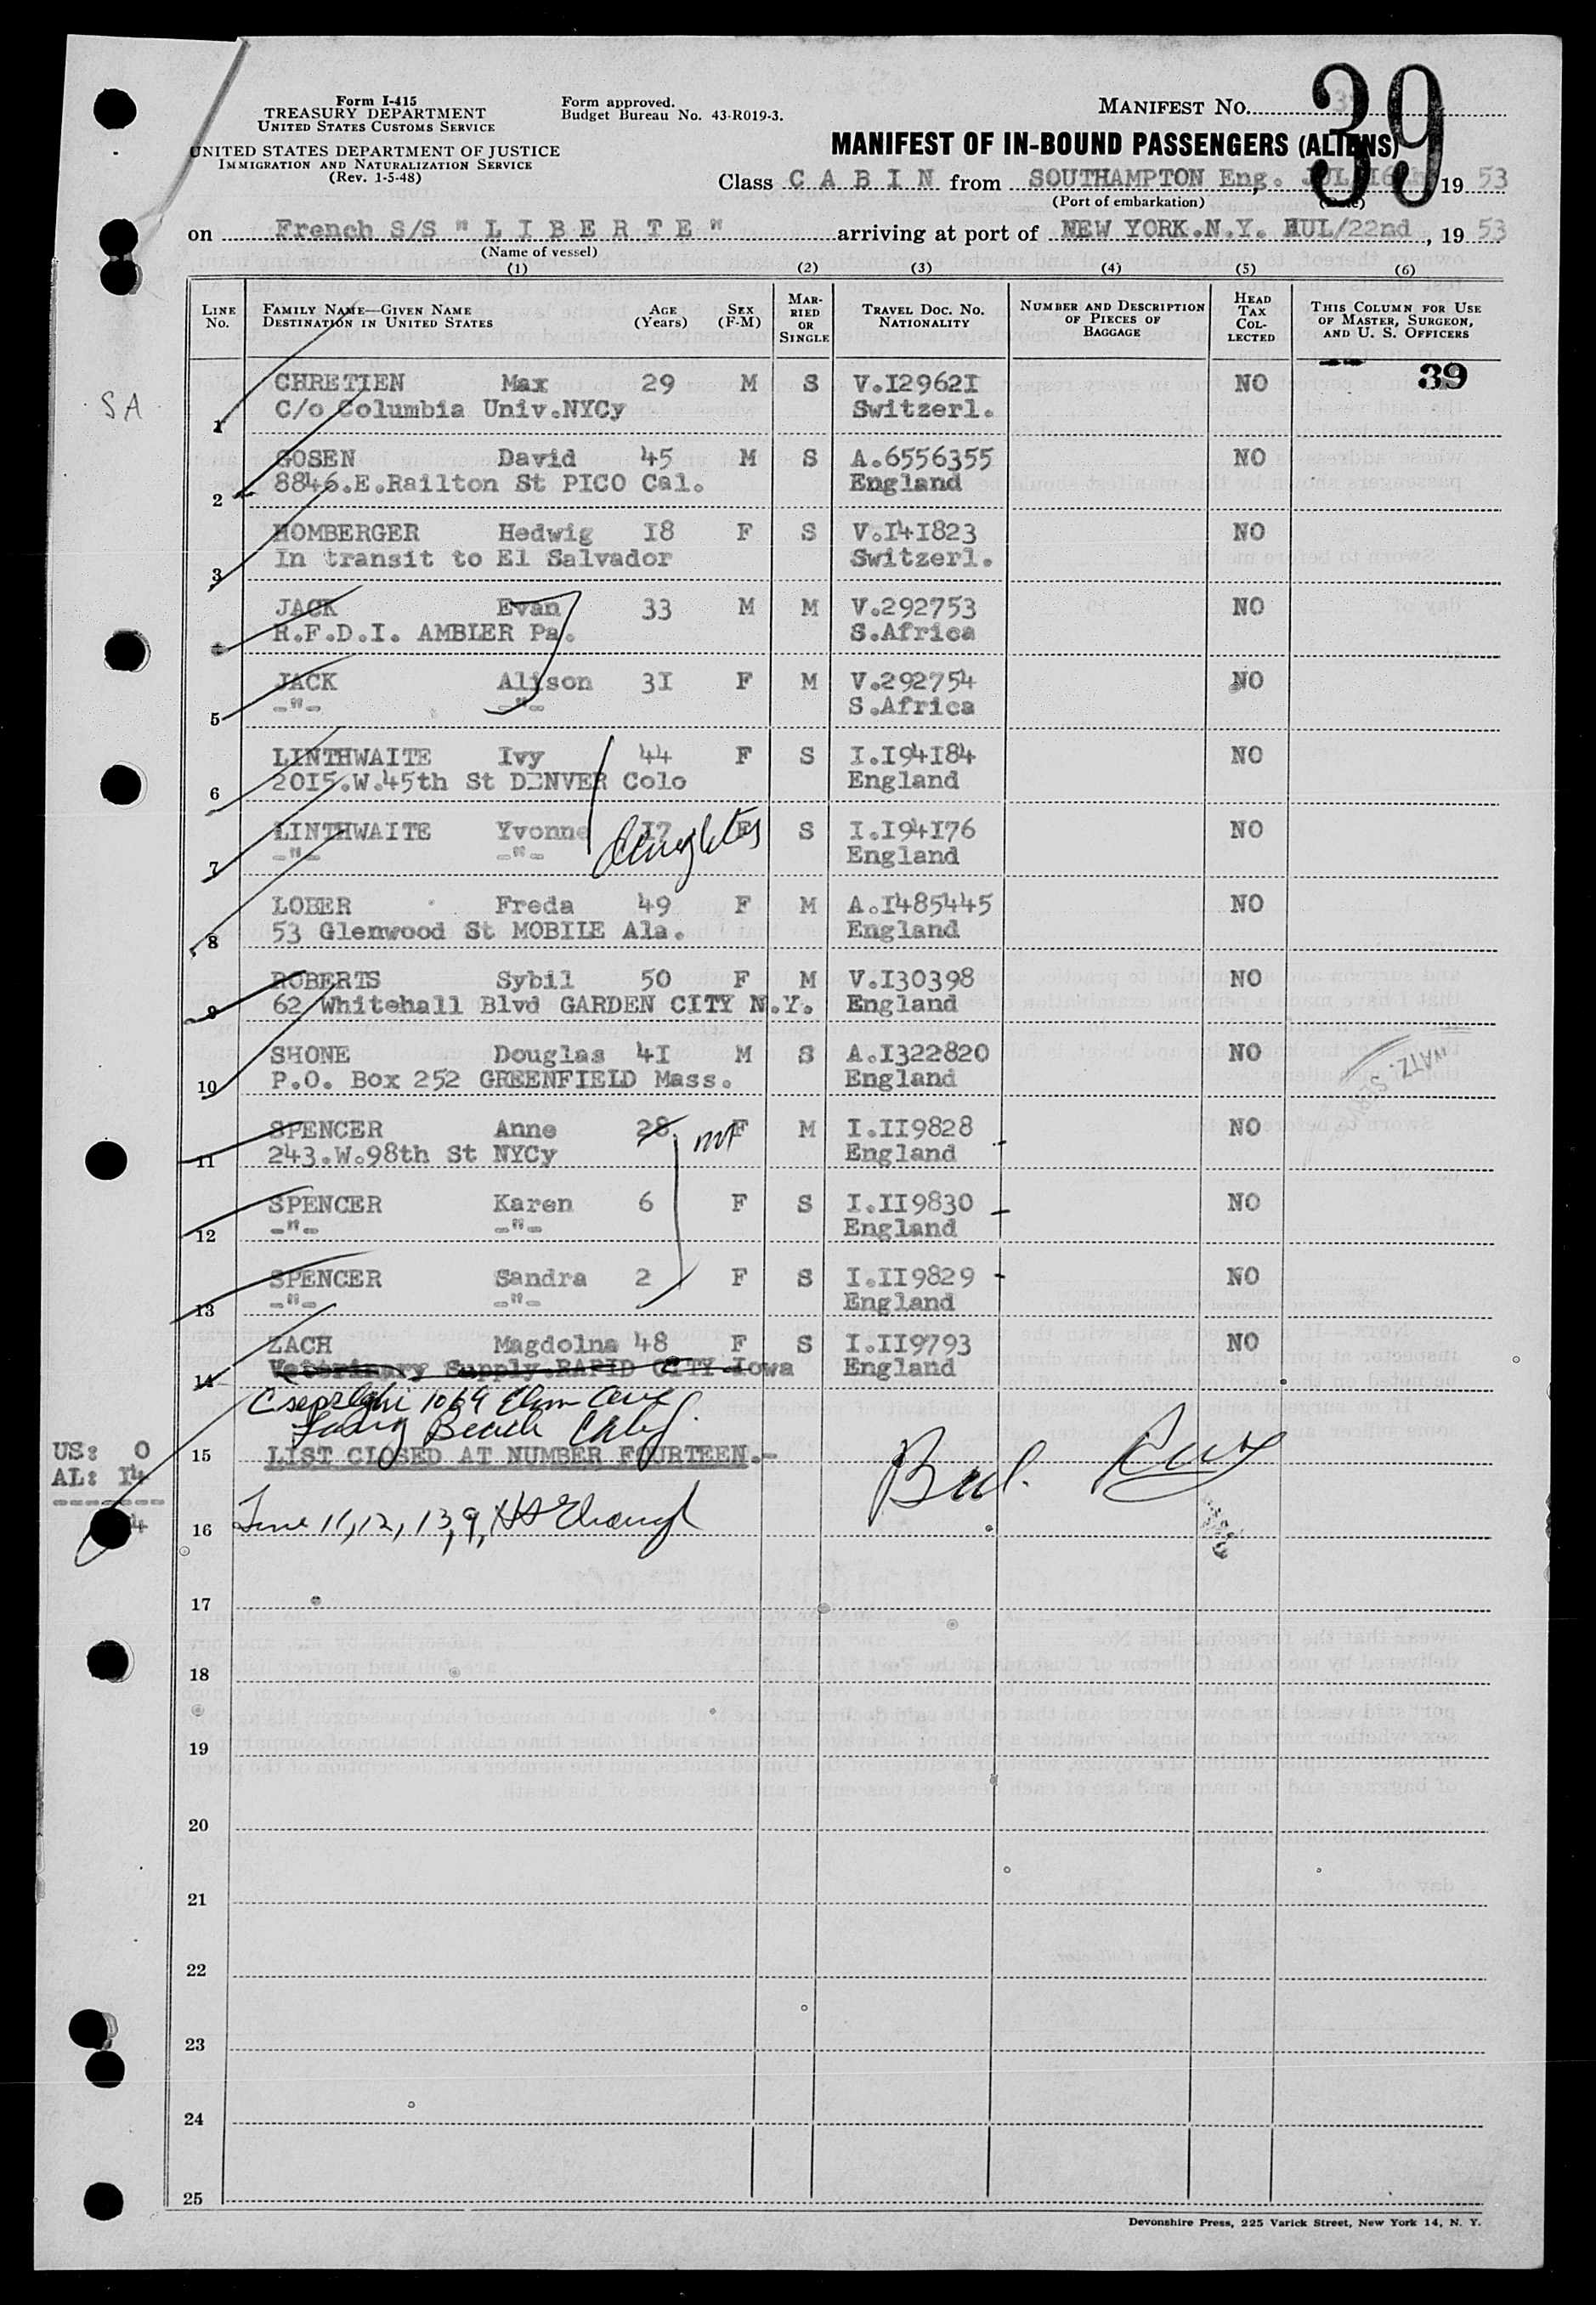 Form I-415
TREASURY DEPARTMENT
UNITED STATES CUSTOMS SERVICE
UNITED STATES DEPARTMENT OF JUSTICE
IMMIGRATION AND NATURALIZATION SERVICE
(Rev. 1-5-48)
Form approved.
Budget Bureau No. 43-R019-3.
MANIFEST NO. 39
MANIFEST OF IN-BOUND PASSENGERS (ALIENS)
Class C A B I N from SOUTHAMPTON Eng. 19 53
(Port of embarkation) (Date)
on French S/S " L I B E R T E " arriving at port of NEW YORK.N.Y. /22nd , 19 53
(Name of vessel)
(1) (2) (3) (4) (5) (6)
LINE NO. FAMILY NAME—GIVEN NAME DESTINATION IN UNITED STATES AGE (Years) SEX (F-M) MARRIED OR SINGLE TRAVEL DOC. NO. NATIONALITY NUMBER AND DESCRIPTION OF PIECES OF BAGGAGE HEAD TAX COLLECTED THIS COLUMN FOR USE OF MASTER, SURGEON, AND U. S. OFFICERS
39
SA
CHRETIEN Max 29 M S V.I2962I NO
1 C/o Columbia Univ.NYCy Switzerl.
GOSEN David 45 M S A.6556355 NO
2 8846.E.Railton St PICO Cal. England
HOMBERGER Hedwig I8 F S V.I4I823 NO
3 In transit to El Salvador Switzerl.
JACK Evan 33 M M V.292753 NO
R.F.D.I. AMBLER Pa. S.Africa
JACK Alison 3I F M V.292754 NO
5 -"- -"- S.Africa
LINTHWAITE Ivy 44 F S I.I94I84 NO
6 20I5.W.45th St DENVER Colo England
LINTHWAITE Yvonne I7 F S I.I94I76 NO
daughter
7 -"- -"- England
LOBER Freda 49 F M A.I485445 NO
8 53 Glenwood St MOBILE Ala. England
ROBERTS Sybil 50 F M V.I30398 NO
9 62 Whitehall Blvd GARDEN CITY N.Y. England
SHONE Douglas 4I M S A.I322820 NO
10 P.O. Box 252 GREENFIELD Mass. England
SPENCER Anne 28 F M I.II9828 NO
11 243.W.98th St NYCy England
SPENCER Karen 6 F S I.II9830 NO
12 -"- -"- England
SPENCER Sandra 2 F S I.II9829 NO
13 -"- -"- England
ZACH Magdolna 48 F S I.II9793 NO
14 Veterinary Supply.RAPID CITY Iowa England
1069 Elm Ave
Long Beach Calif.
US: 0
AL: I4
15 LIST CLOSED AT NUMBER FOURTEEN.-
16 Line 11, 12, 13, 9,
17
18
19
20
21
22
23
24
25
Devonshire Press, 225 Varick Street, New York 14, N. Y.